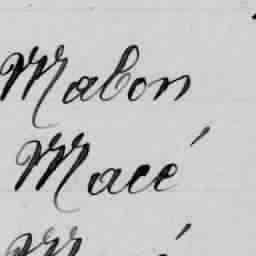 Mabon
Macé